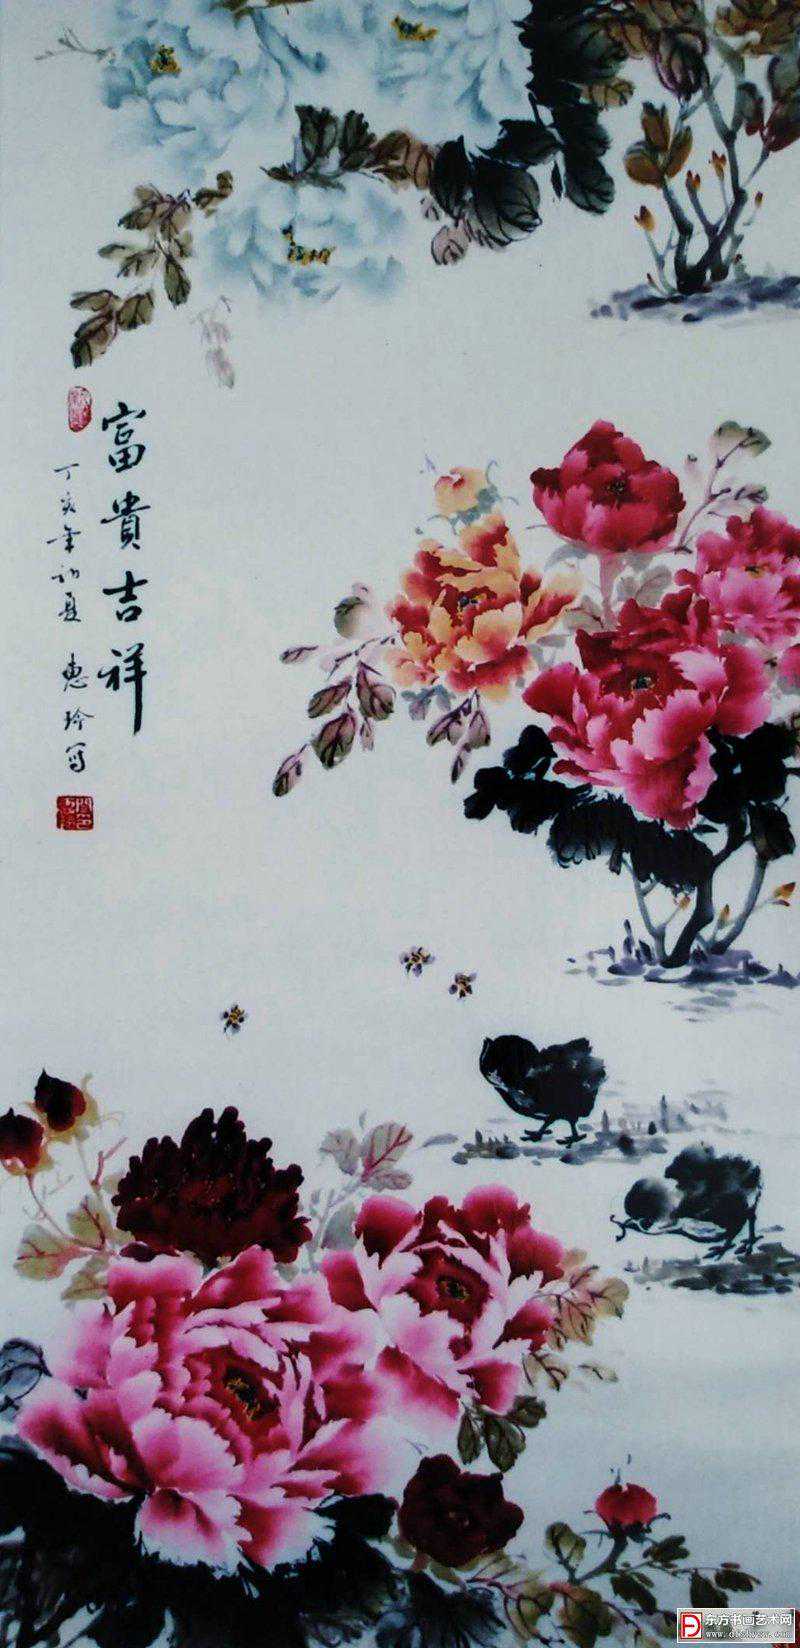 富貴吉祥
丁亥年初夏 惠玲写
东方书画艺术网